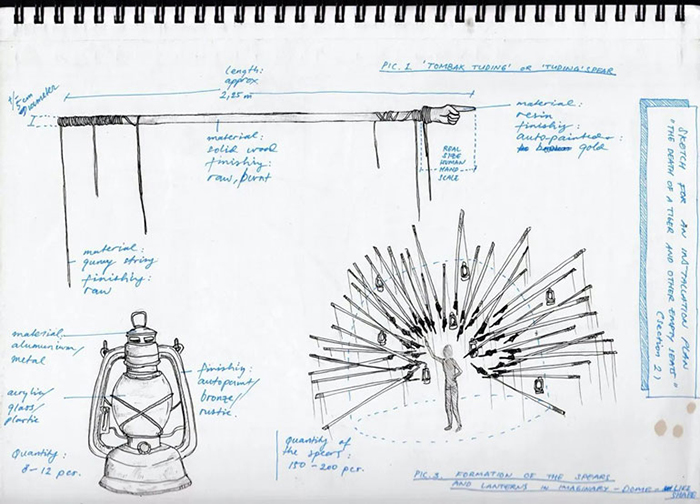 PIC. 1 'TOMBAK TUDING' or 'TUDING' SPEAR
Length:
approx
2,25 m
5cm
Diameter
material:
solid wood
finishing:
raw, burnt
REAL
SIZE
HUMAN
HAND
SCALE
material:
resin
finishing:
autopainted:
gold
material:
gunny string
finishing:
raw
material:
aluminium/
metal
acrylic/
glass/
plastic
Quantity:
8-12 pcs.
finishing:
autopaint/
bronze/
rustic.
Quantity of
the spears:
150-200 pcs.
PIC. 3. FORMATION OF THE SPEARS
AND LANTERNS IN IMAGINARY-DOME-LIKE
SKETCH FOR AN INSTALLATION PLAN
"THE DEATH OF A TIGER AND OTHER EMPTY SEATS"
(Section 2)